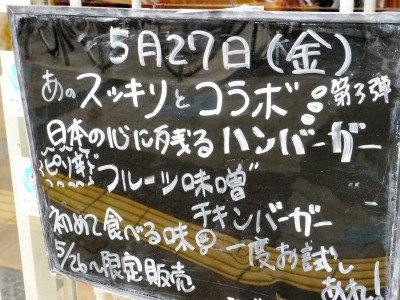 5月27日(金)
あのスッキリとコラボ 第3弾
日本の心に残るハンバーガー
ピリ辛 フルーツ味噌
チキンバーガー
初めて食べる味 一度お試し
あれ!
5/26〜限定販売